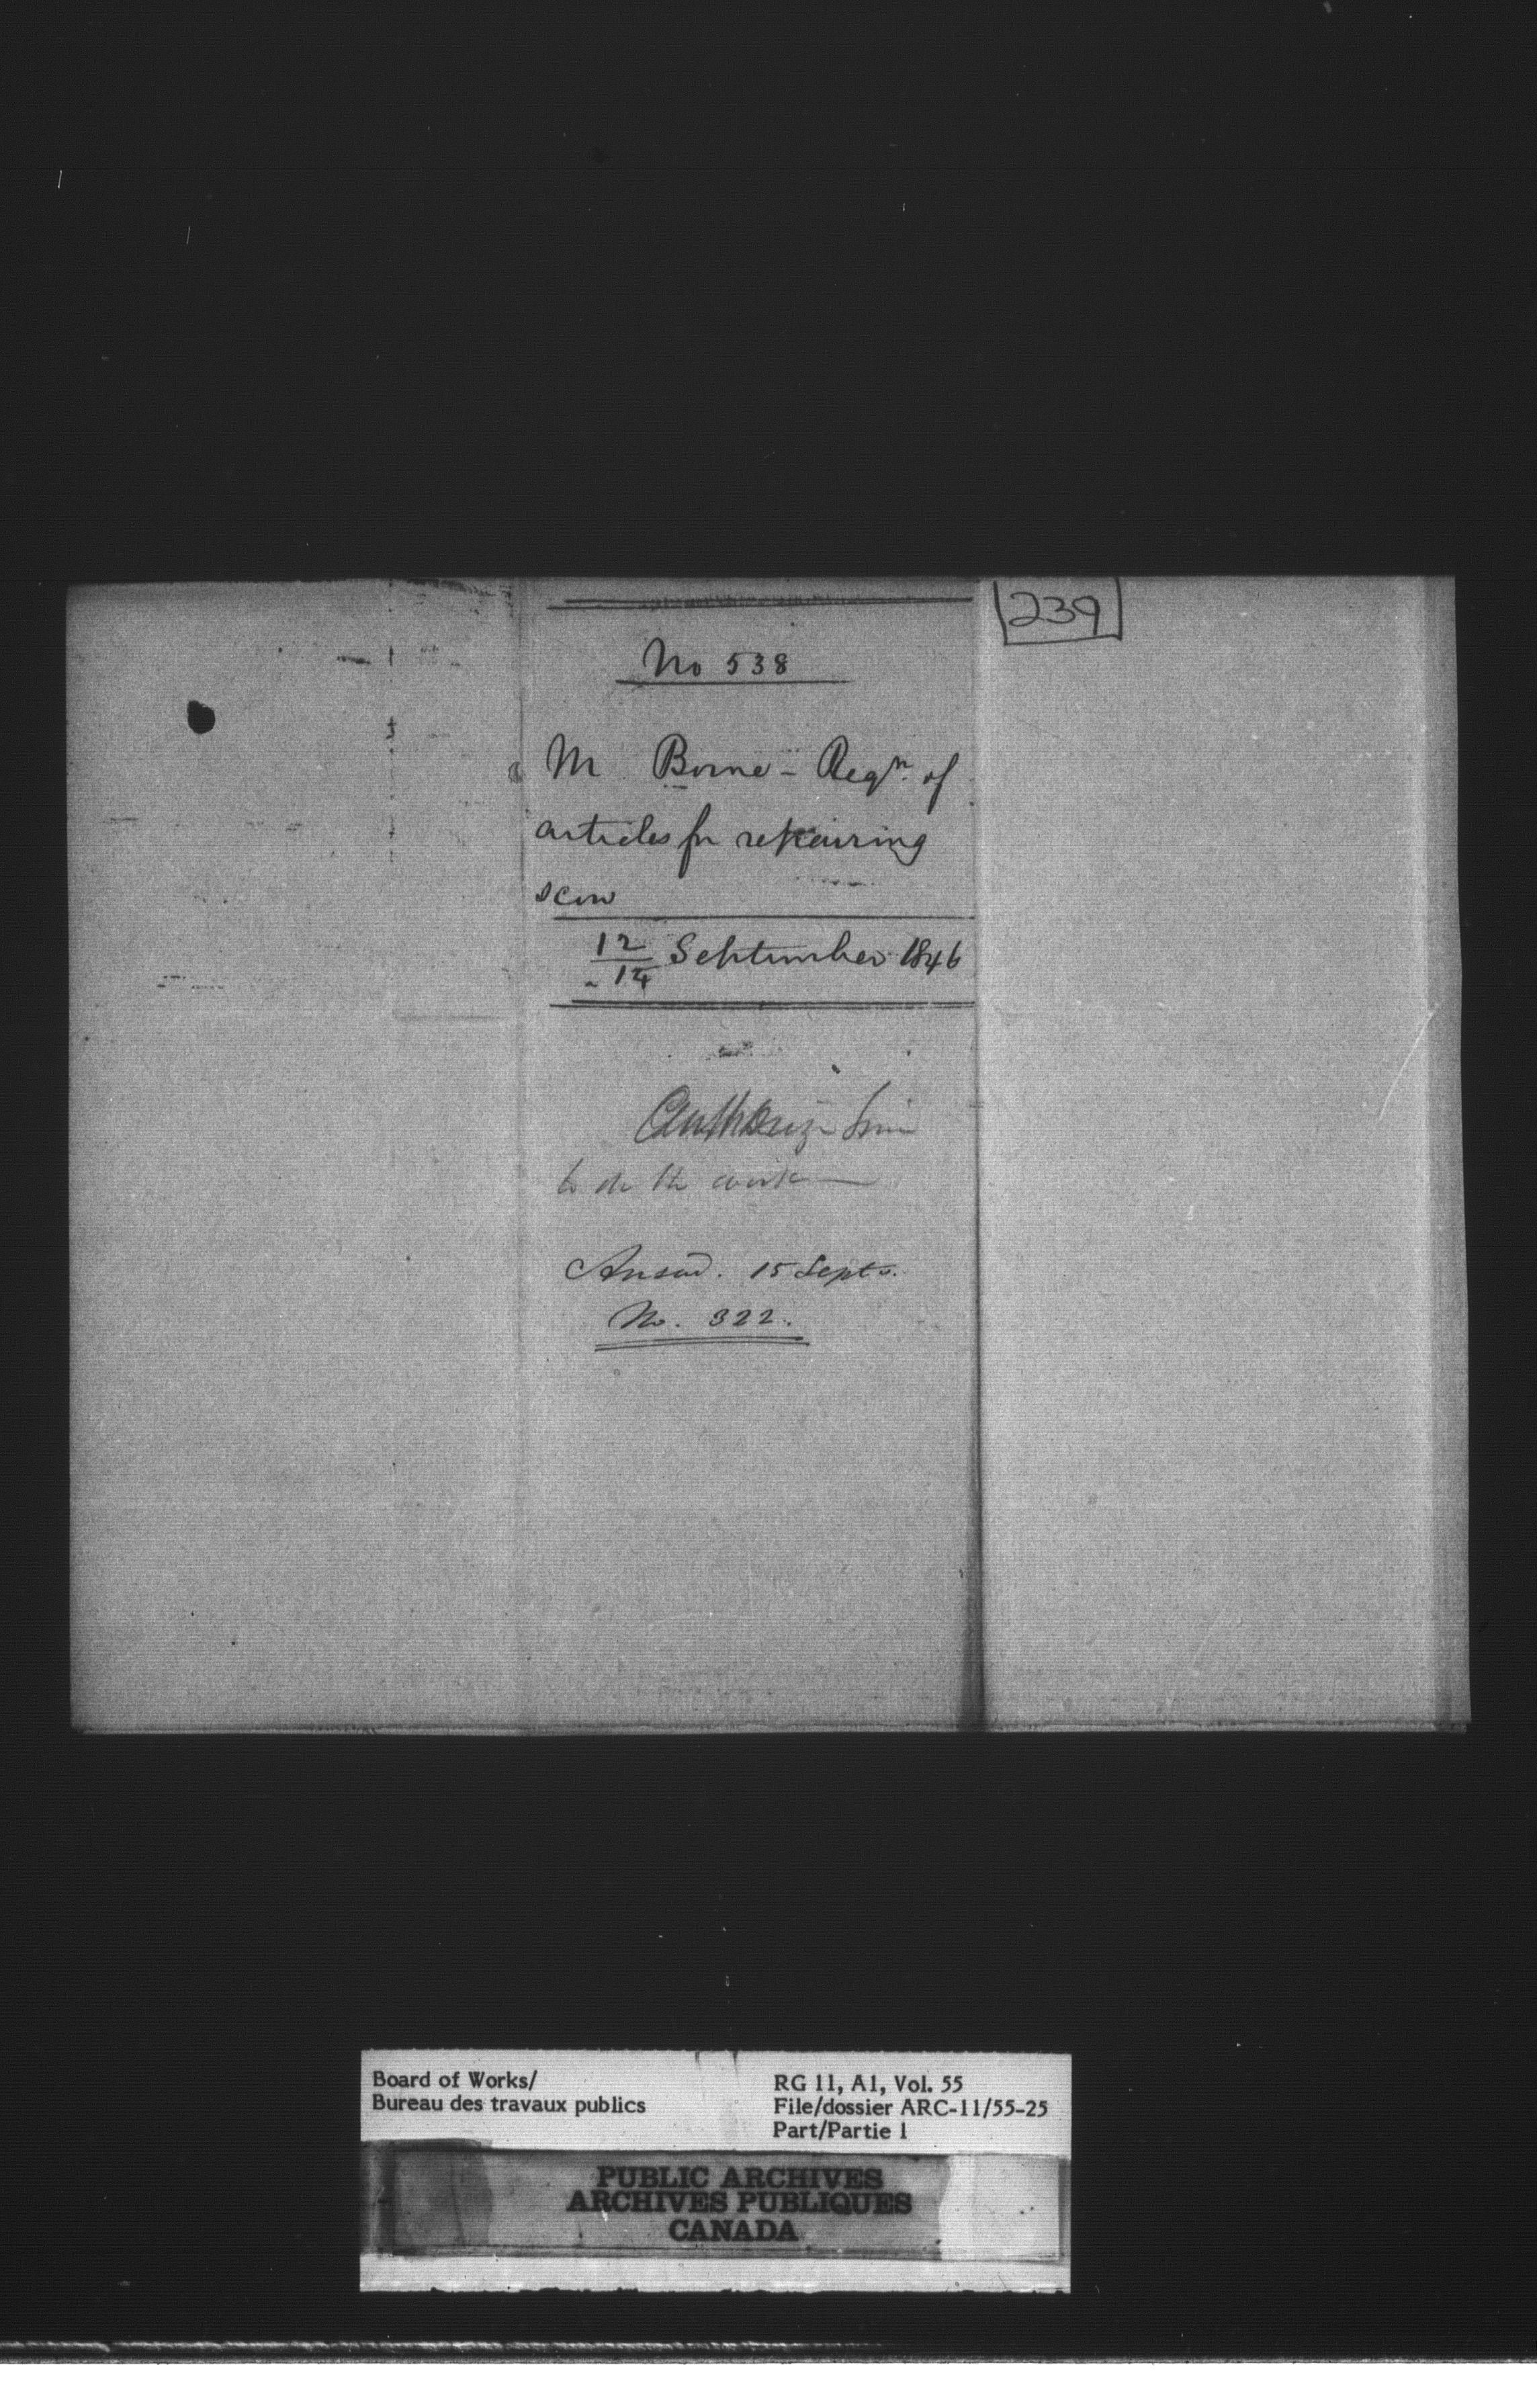 239
No 538
M Borne - Reqn. of
articles for repairing
scow
12/14 September 1846
Authorize him
to do the work —
Answd. 15 Septr.
No. 322.
Board of Works/
Bureau des travaux publics
RG 11, A1, Vol. 55
File/dossier ARC-11/55-25
Part/Partie 1
PUBLIC ARCHIVES
ARCHIVES PUBLIQUES
CANADA